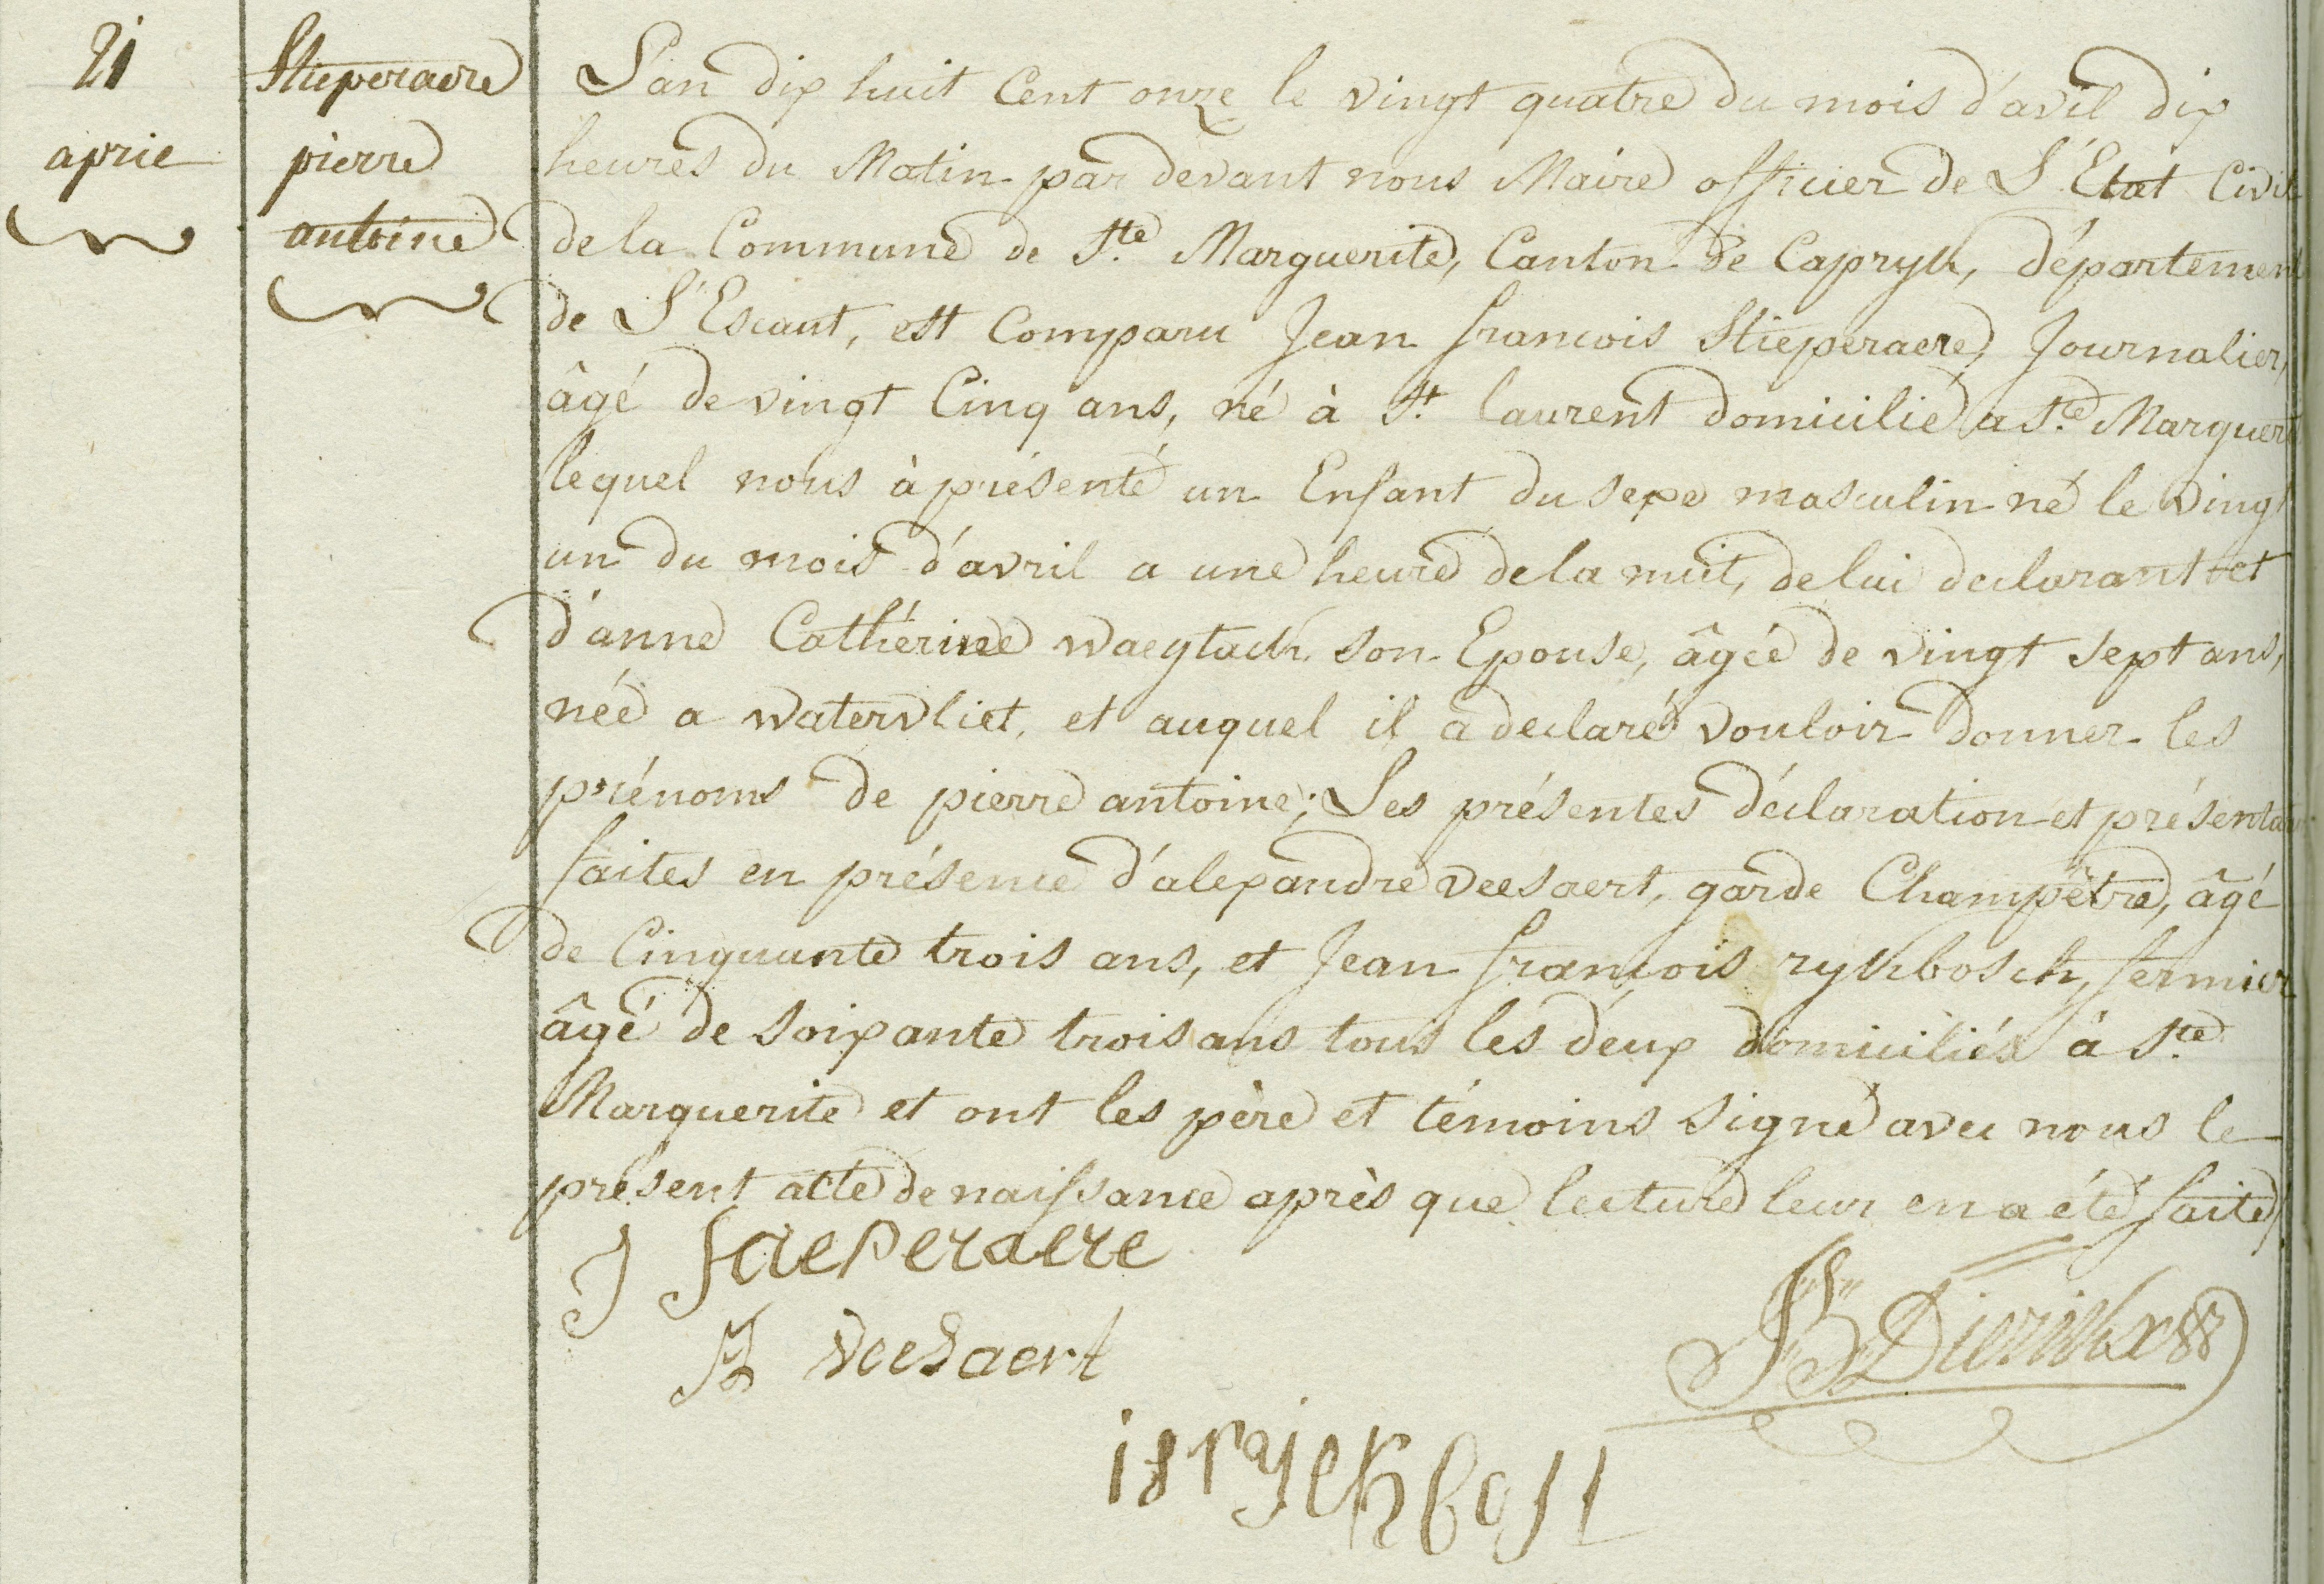 21
aprie
Stieperaere
pierre
antoine
L'an dix huit Cent onze le vingt quatre du mois d'avil dix
heures du Matin par devant nous Maire officier de L'Etat Civil
de la Commune de Ste Marguerite, Canton de Capryk, département
de L'Escaut, est Comparu Jean francois Stieperaere, Journalier,
âgé de vingt Cinq ans, né à St laurent domicilié a Ste Marguerite
lequel nous à présenté un Enfant du sexe masculin né le vingt
un du mois d'avril a une heure de la nuit, de lui declarant et
d'anne Cathérine waeytack son Epouse, âgée de vingt sept ans,
née a watervliet, et auquel il a declaré vouloir donner les
prénoms de pierre antoine; Les présentes déclaration et présentation
faites en présence d'alexandre veesaert, garde Champêtre, âgé
de Cinquante trois ans, et Jean françois rykbosch, fermier
âgé de soixante trois ans tous les deux domiciliés à Ste
Marguerite et ont les père et témoins signé avec nous le
présent acte de naissance après que lecture leur en a été faite
J Stieperaere
veesaert
JB Dierickx
rijckbost